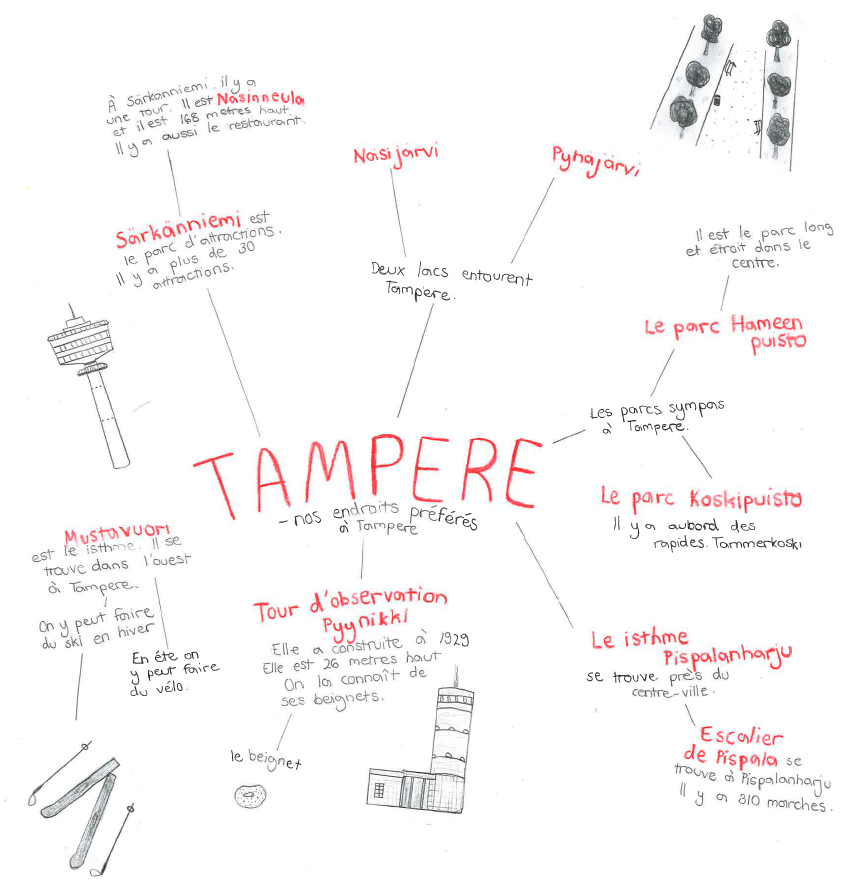 À Särkänniemi, il y a
une tour. Il est Näsinneula
et il est 168 metres haut.
Il y a aussi le restaurant.
Särkänniemi est
le parc d'attractions.
Il y a plus de 30
attractions.
Näsijärvi
Pyhäjärvi
Deux lacs entourent
Tampere.
Il est le parc long
et étroit dans le
centre.
Le parc Hameen
puisto
Les parcs sympas
à Tampere.
Le parc Koskipuisto
Il y a aubord des
rapides. Tammerkoski
TAMPERE
- nos endroits préférés
à Tampere
Mustavuori
est le isthme. Il se
trouve dans l'ouest
à Tampere.
On y peut faire
du ski en hiver
En éte on
y peut faire
du vélo.
Tour d'observation
Pyynikki
Elle a construite à 1929
Elle est 26 metres haut
On la connaît de
ses beignets.
le beignet
Le isthme
Pispalanharju
se trouve près du
centre-ville.
Escalier
de Pispala se
trouve à Pispalanharju
Il y a 310 marches.